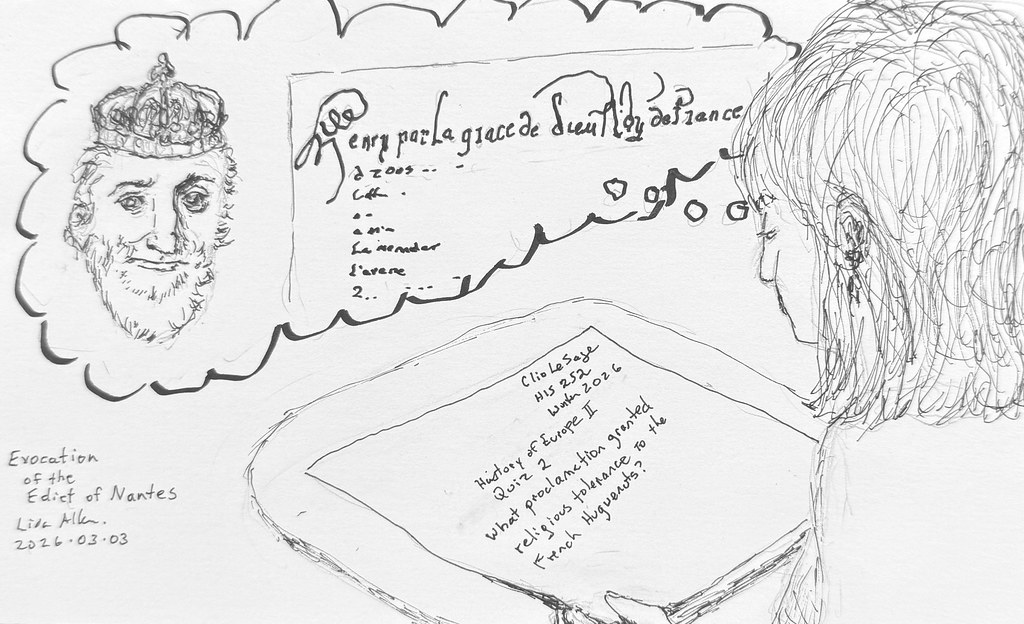 Henry par La grace de Dieu Roy de France
La
l'avene
Clio LeSage
HIS 252
Winter 2026
History of Europe II
Quiz 2
What proclamation granted
religious tolerance to the
French Huguenots?
Evocation
of the
Edict of Nantes
2026.03.03